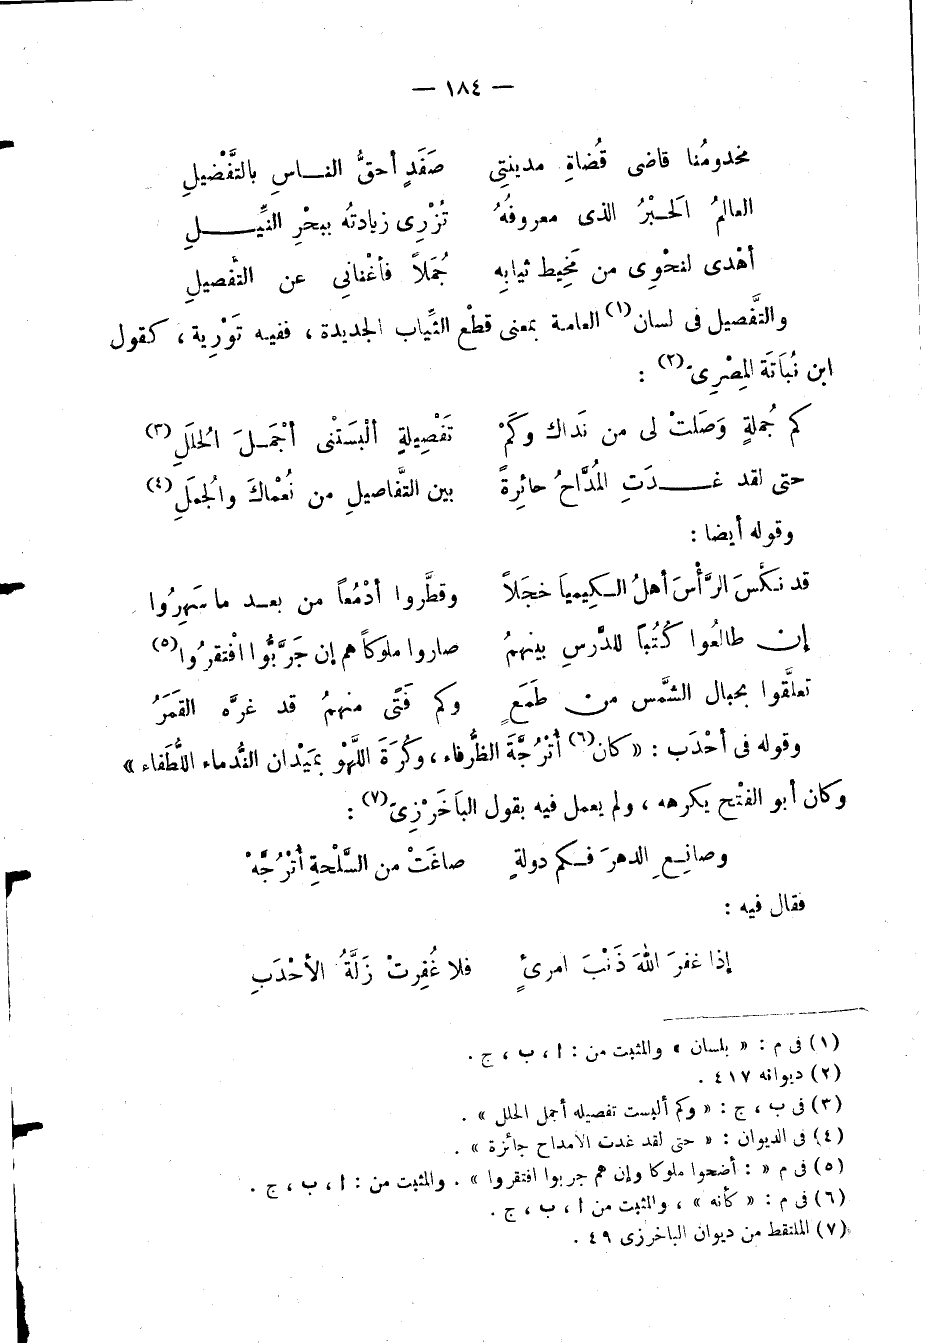 — ١٨٤ —
مخدومُنا قاضى قُضاةِ مدينتِى صَفَدٍ أحقُّ النـاسِ بالتَّفْضيلِ
العالمُ الحَبْرُ الذى معروفُهُ تُزْرِى زيادتُه ببحْرِ النِّيـلِ
أهْدى لنحْوِى من مَخِيط ثيابِه جُمَلاً فأغْنانِى عن التفْصيلِ
والتَّفصيل فى لسان(١) العامة بمعنى قطْع الثِّياب الجديدة ، ففيه تَوْرية ، كقول
ابن نُبَاتَة المِصْرِىّ(٢) :
كم جُملةٍ وَصَلتْ لى من نَداك وكَمْ تَفْصِيلةٍ ألْبَستْنى أجْمَـلَ الحُلَلِ(٣)
حتى لقد غـدَتِ المُدَّاحُ حائِرةً بين التَّفاصيلِ من نُعْماكَ والجُمَلِ(٤)
وقوله أيضا :
قد نكَّسَ الرَّأْسَ أهلُ الكِيمياَ خجَلاً وقطَّروا أدْمُعاً من بعـد ما سَهِرُوا
إن طالعُوا كُتُباً للدَّرسِ بينهمُ صاروا ملوكاً هم إن جَرَّبُوا افْتقرُوا(٥)
تعلَّقوا بحبال الشَّمس من طَمَعٍ وكم فَتًى منهمُ قد غرَّه القَمَرُ
وقوله فى أحْدَب : « كان(٦) أُتْرُجَّةَ الظُّرفاء ، وكُرَةَ اللَّهْوِ بمَيْدان النُّدماء اللُّطَفاء »
وكان أبو الفتْح يكرهه ، ولم يعمل فيه بقول البَاخَرْزِىّ(٧) :
وصانِـعِ الدهرَ فـكم دولةٍ صاغَتْ من السَّلْحةِ أُتْرُجَّهْ
فقال فيه :
إذا غفرَ اللهَ ذَنْبَ امرئٍ فلا غُفِرتْ زَلَّةُ الأحْدَبِ
(١) فى م : « بلسان » والمثبت من : ا ، ب ، ج .
(٢) ديوانه ٤١٧ .
(٣) فى ب ، ج : « وكم ألبست تفصيله أجمل الحلل » .
(٤) فى الديوان : « حتى لقد غدت الأمداح جائزة » .
(٥) فى م « : أضحوا ملوكا وإن هم جربوا افتقروا » . والمثبت من : ا ، ب ، ج .
(٦) فى م : « كأنه » ، والمثبت من ا ، ب ، ج .
(٧) الملتقط من ديوان الباخرزى ٤٩ .